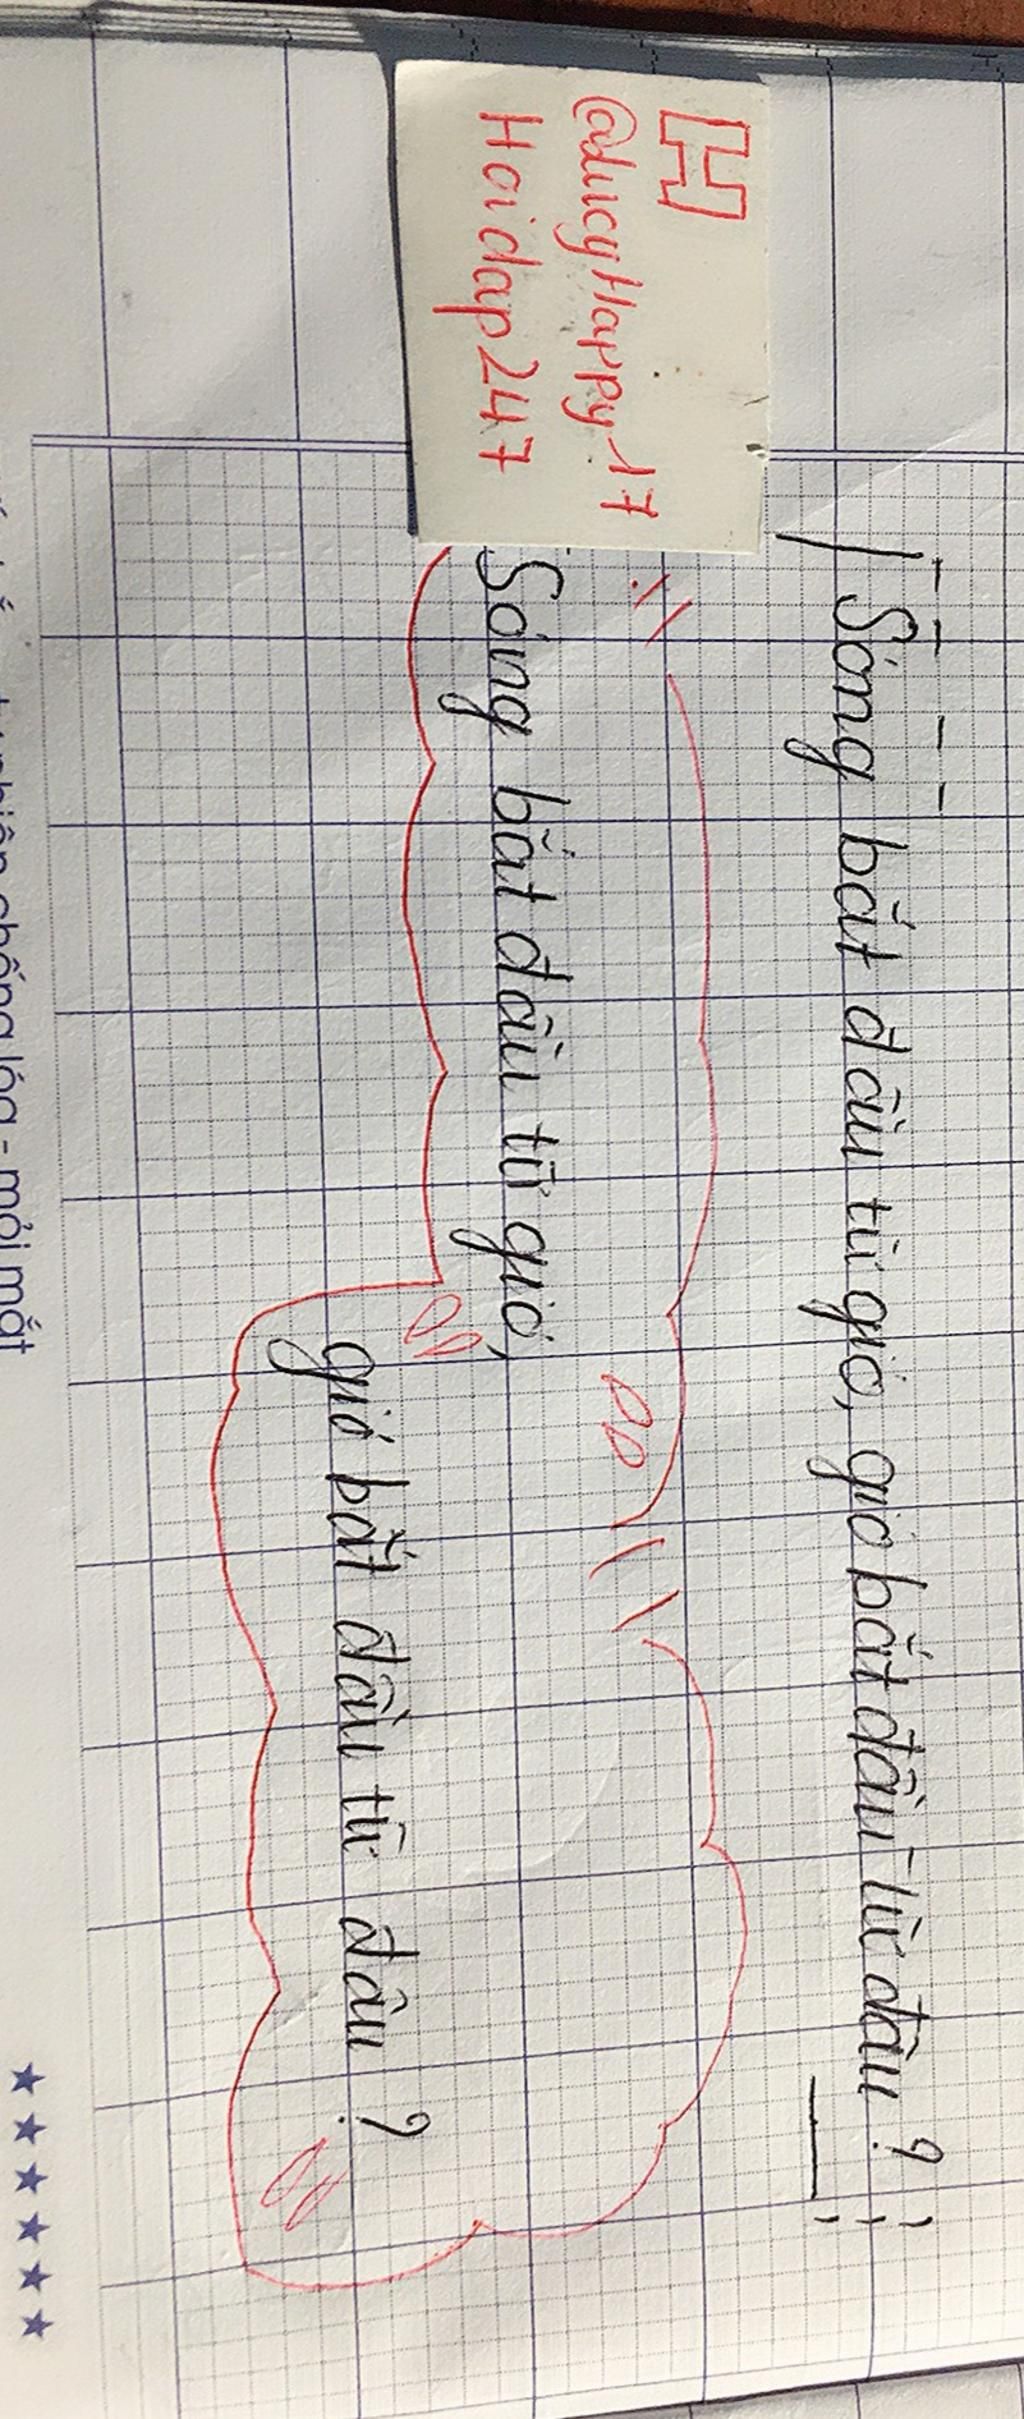 Sóng bắt đầu từ gió, gió bắt đầu từ đâu?
H
@LucyHappy-17
Hoidap247
Sóng bắt đầu từ gió,
gió bắt đầu từ đâu?
chống lóa - mỏi mắt